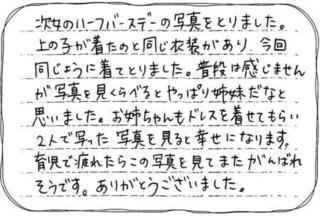 次女のハーフバースデーの写真をとりました。
上の子が着たのと同じ衣装があり、今回
同じように着てとりました。普段は感じません
が写真を見くらべるとやっぱり姉妹だなと
思いました。お姉ちゃんもドレスを着せてもらい
2人で写った写真を見ると幸せになります。
育児で疲れたらこの写真を見てまたがんばれ
そうです。ありがとうございました。